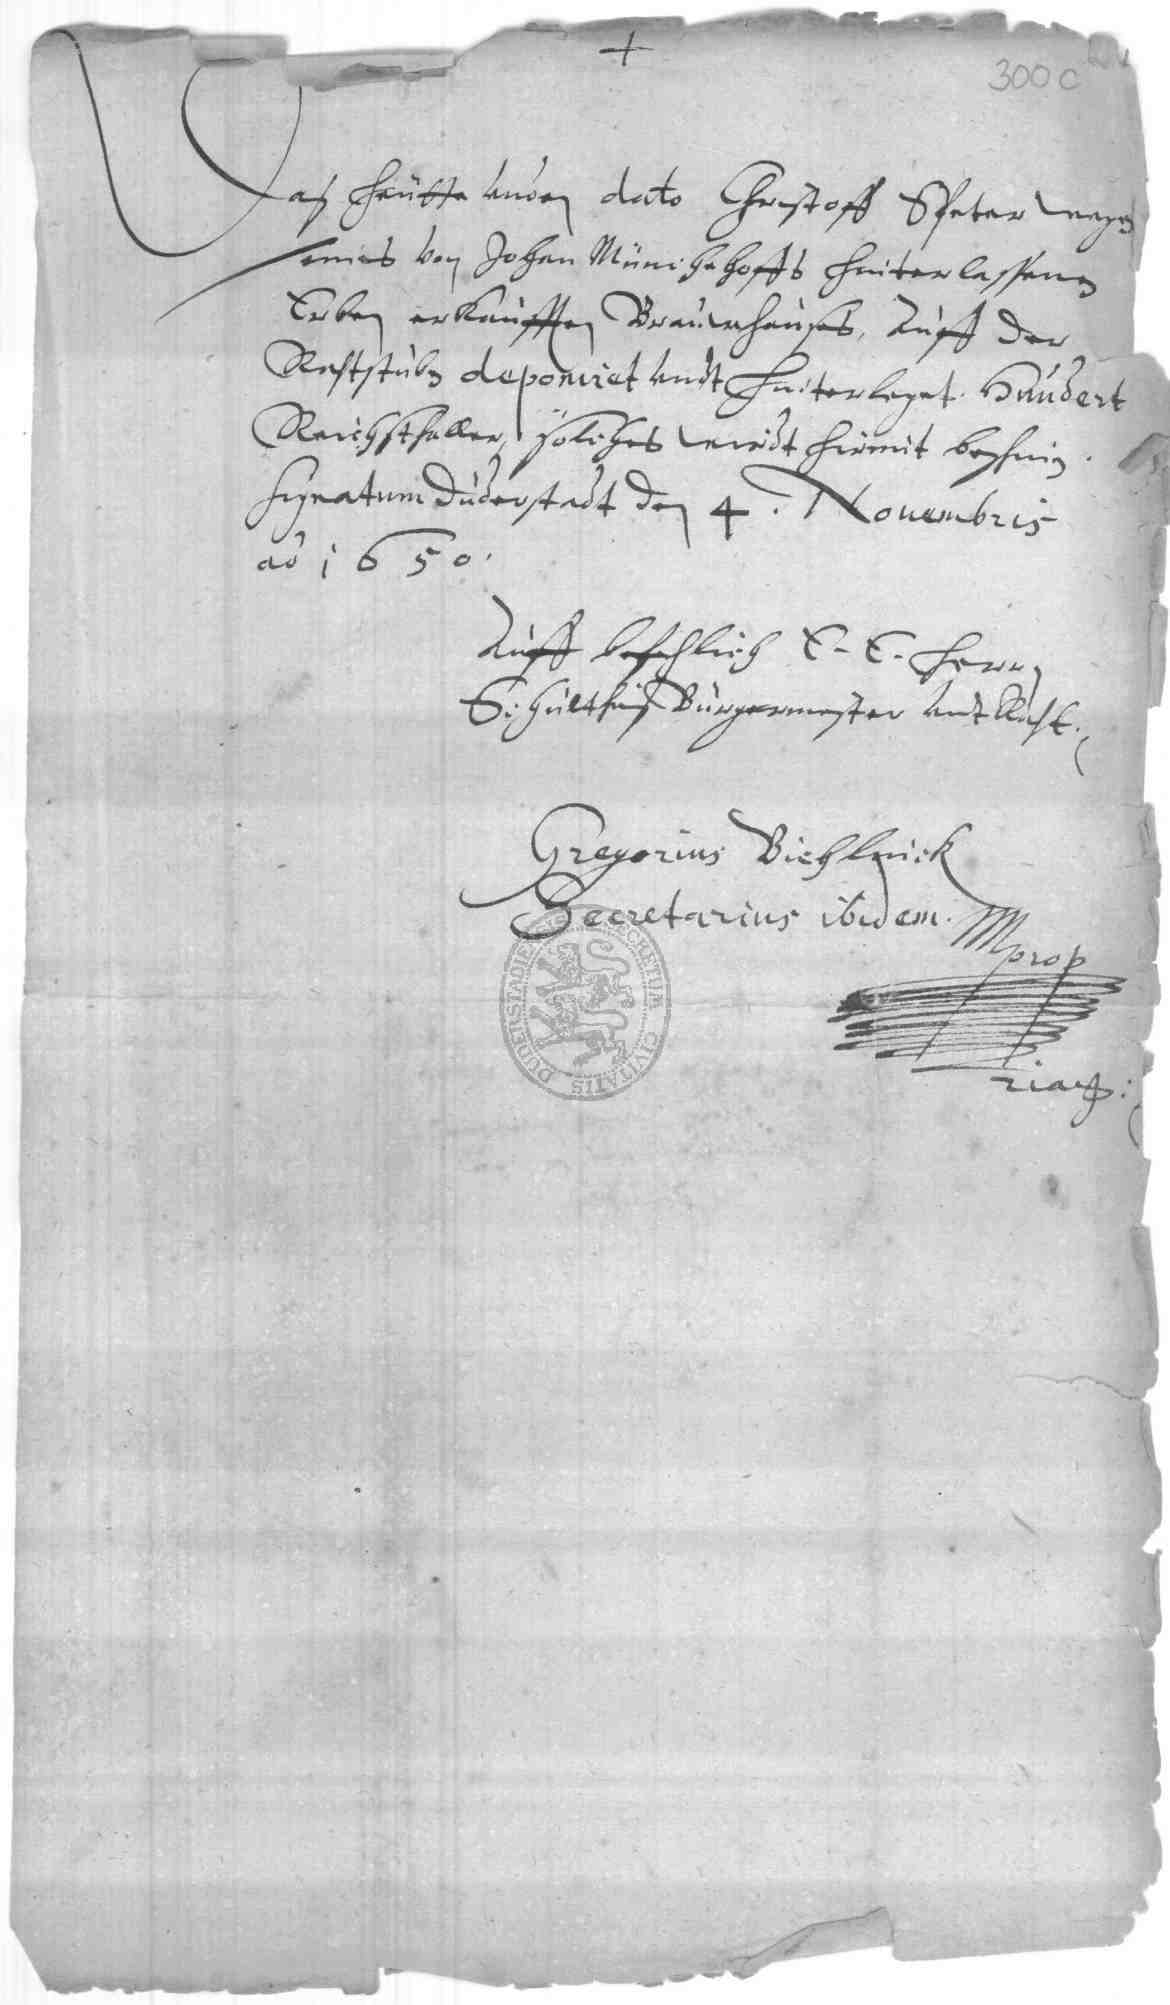 +
300 c
Das heütte vnden dato Christoff Speter wegen
seines von Johan Münichehoffs hinterlassenen
Erben erkaufften Brauwhauses, Auff der
Rahtstuben deponiret vndt hinterleget. Hundert
Reichsthaller, solches wirdt hirmit beschein.
signatum Duderstadt den 4. Novembris
ao 1650.
Auff befehlich E. E. Herrn
Schultheis Bürgermester vndt Raht.
Gregorius
Secretarius ibidem.
Mprop
riae:
SECRETUM CIVITATIS DUDERSTADIENSIS